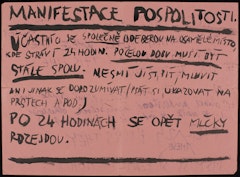 MANIFESTACE POSPOLITOSTI.
ÚČASTNÍCI SE SPOLEČNĚ ODEBEROU NA OSAMĚLÉ MÍSTO,
KDE STRÁVÍ 24 HODIN. PO CELOU DOBU MUSÍ BÝT
STÁLE SPOLU. NESMÍ JÍST, PÍT, MLUVIT
ANI JINAK SE DOROZUMÍVAT (PSÁT SI, UKAZOVAT NA
PRSTECH A POD.)
PO 24 HODINÁCH SE OPĚT MLČKY
ROZEJDOU.